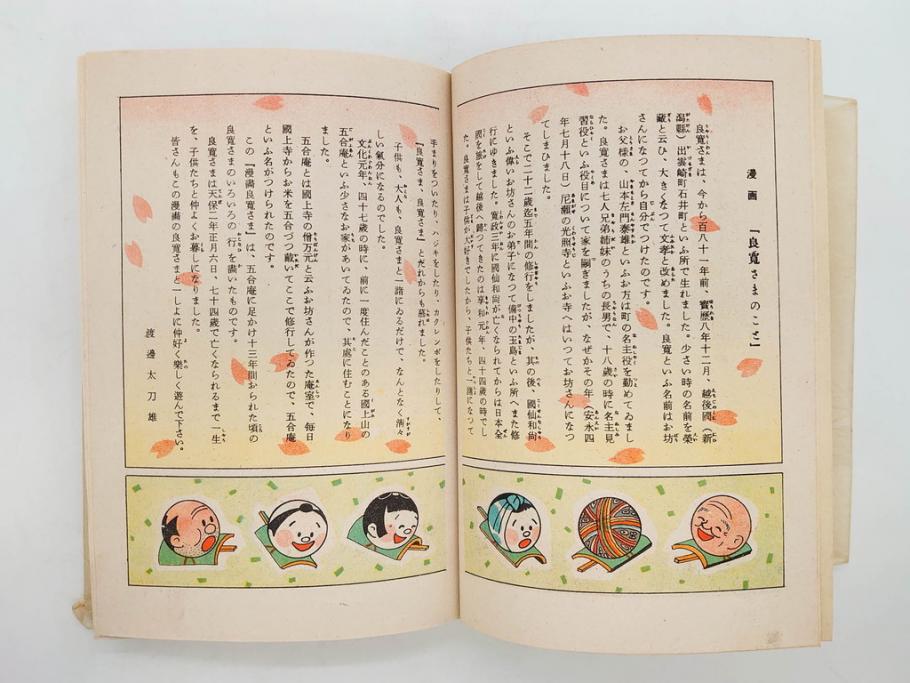 漫画 『良寛さまのこと』
良寛さまは、今から百八十一年前、寳暦八年十二月、越後國（新
潟縣）出雲崎町石井町といふ所で生れました。少さい時の名前を榮
藏と云ひ、大きくなつて文孝と改めました。良寛といふ名前はお坊
さんになつてから自分でつけたのです。
お父樣の、山本左門泰雄といふお方は町の名主役を勤めてゐまし
た。良寛さまは七人兄弟姉妹のうちの長男で、十八歳の時に名主見
習役といふ役目について家を嗣ぎましたが、なぜかその年（安永四
年七月十八日）尼瀬の光照寺といふお寺へはいつてお坊さんになつ
てしまひました。
そこで二十二歳迄五年間の修行をしましたが、其の後、國仙和尚
といふ偉いお坊さんのお弟子になつて備中の玉島といふ所へまた修
行にゆきました。寛政三年に國仙和尚が亡くなられてからは日本全
國を旅をして越後へ歸つてきたのは享和元年、四十四歳の時でし
た。良寛さまは子供が大好きでしたから、子供たちと一諸になつて
手まりをついたり、ハジキをしたり、カクレンボをしたりして、
『良寛さま、良寛さま』とだれからも慕れました。
子供も、大人も、良寛さまと一諸にゐるだけで、なんとなく清々
しい氣分になるのでした。
文化元年、四十七歳の時に、前に一度住んだことのある國上山の
五合庵といふ少さなお家があいてゐたので、其處に住むことになり
ました。
五合庵とは國上寺の僧万元と云ふお坊さんが作つた庵室で、毎日
國上寺からお米を五合づつ戴いてここで修行してゐたので、五合庵
といふ名がつけられたのです。
この『漫画良寛さま』は、五合庵に足かけ十三年間おられた頃の
良寛さまのいろいろの行を畵いたものです。
良寛さまは天保二年正月六日、七十四歳で亡くなられるまで一生
を、子供たちと仲よくお暮しになりました。
皆さんもこの漫画の良寛さまと一しよに仲好く樂しく遊んで下さい。
渡邊太刀雄